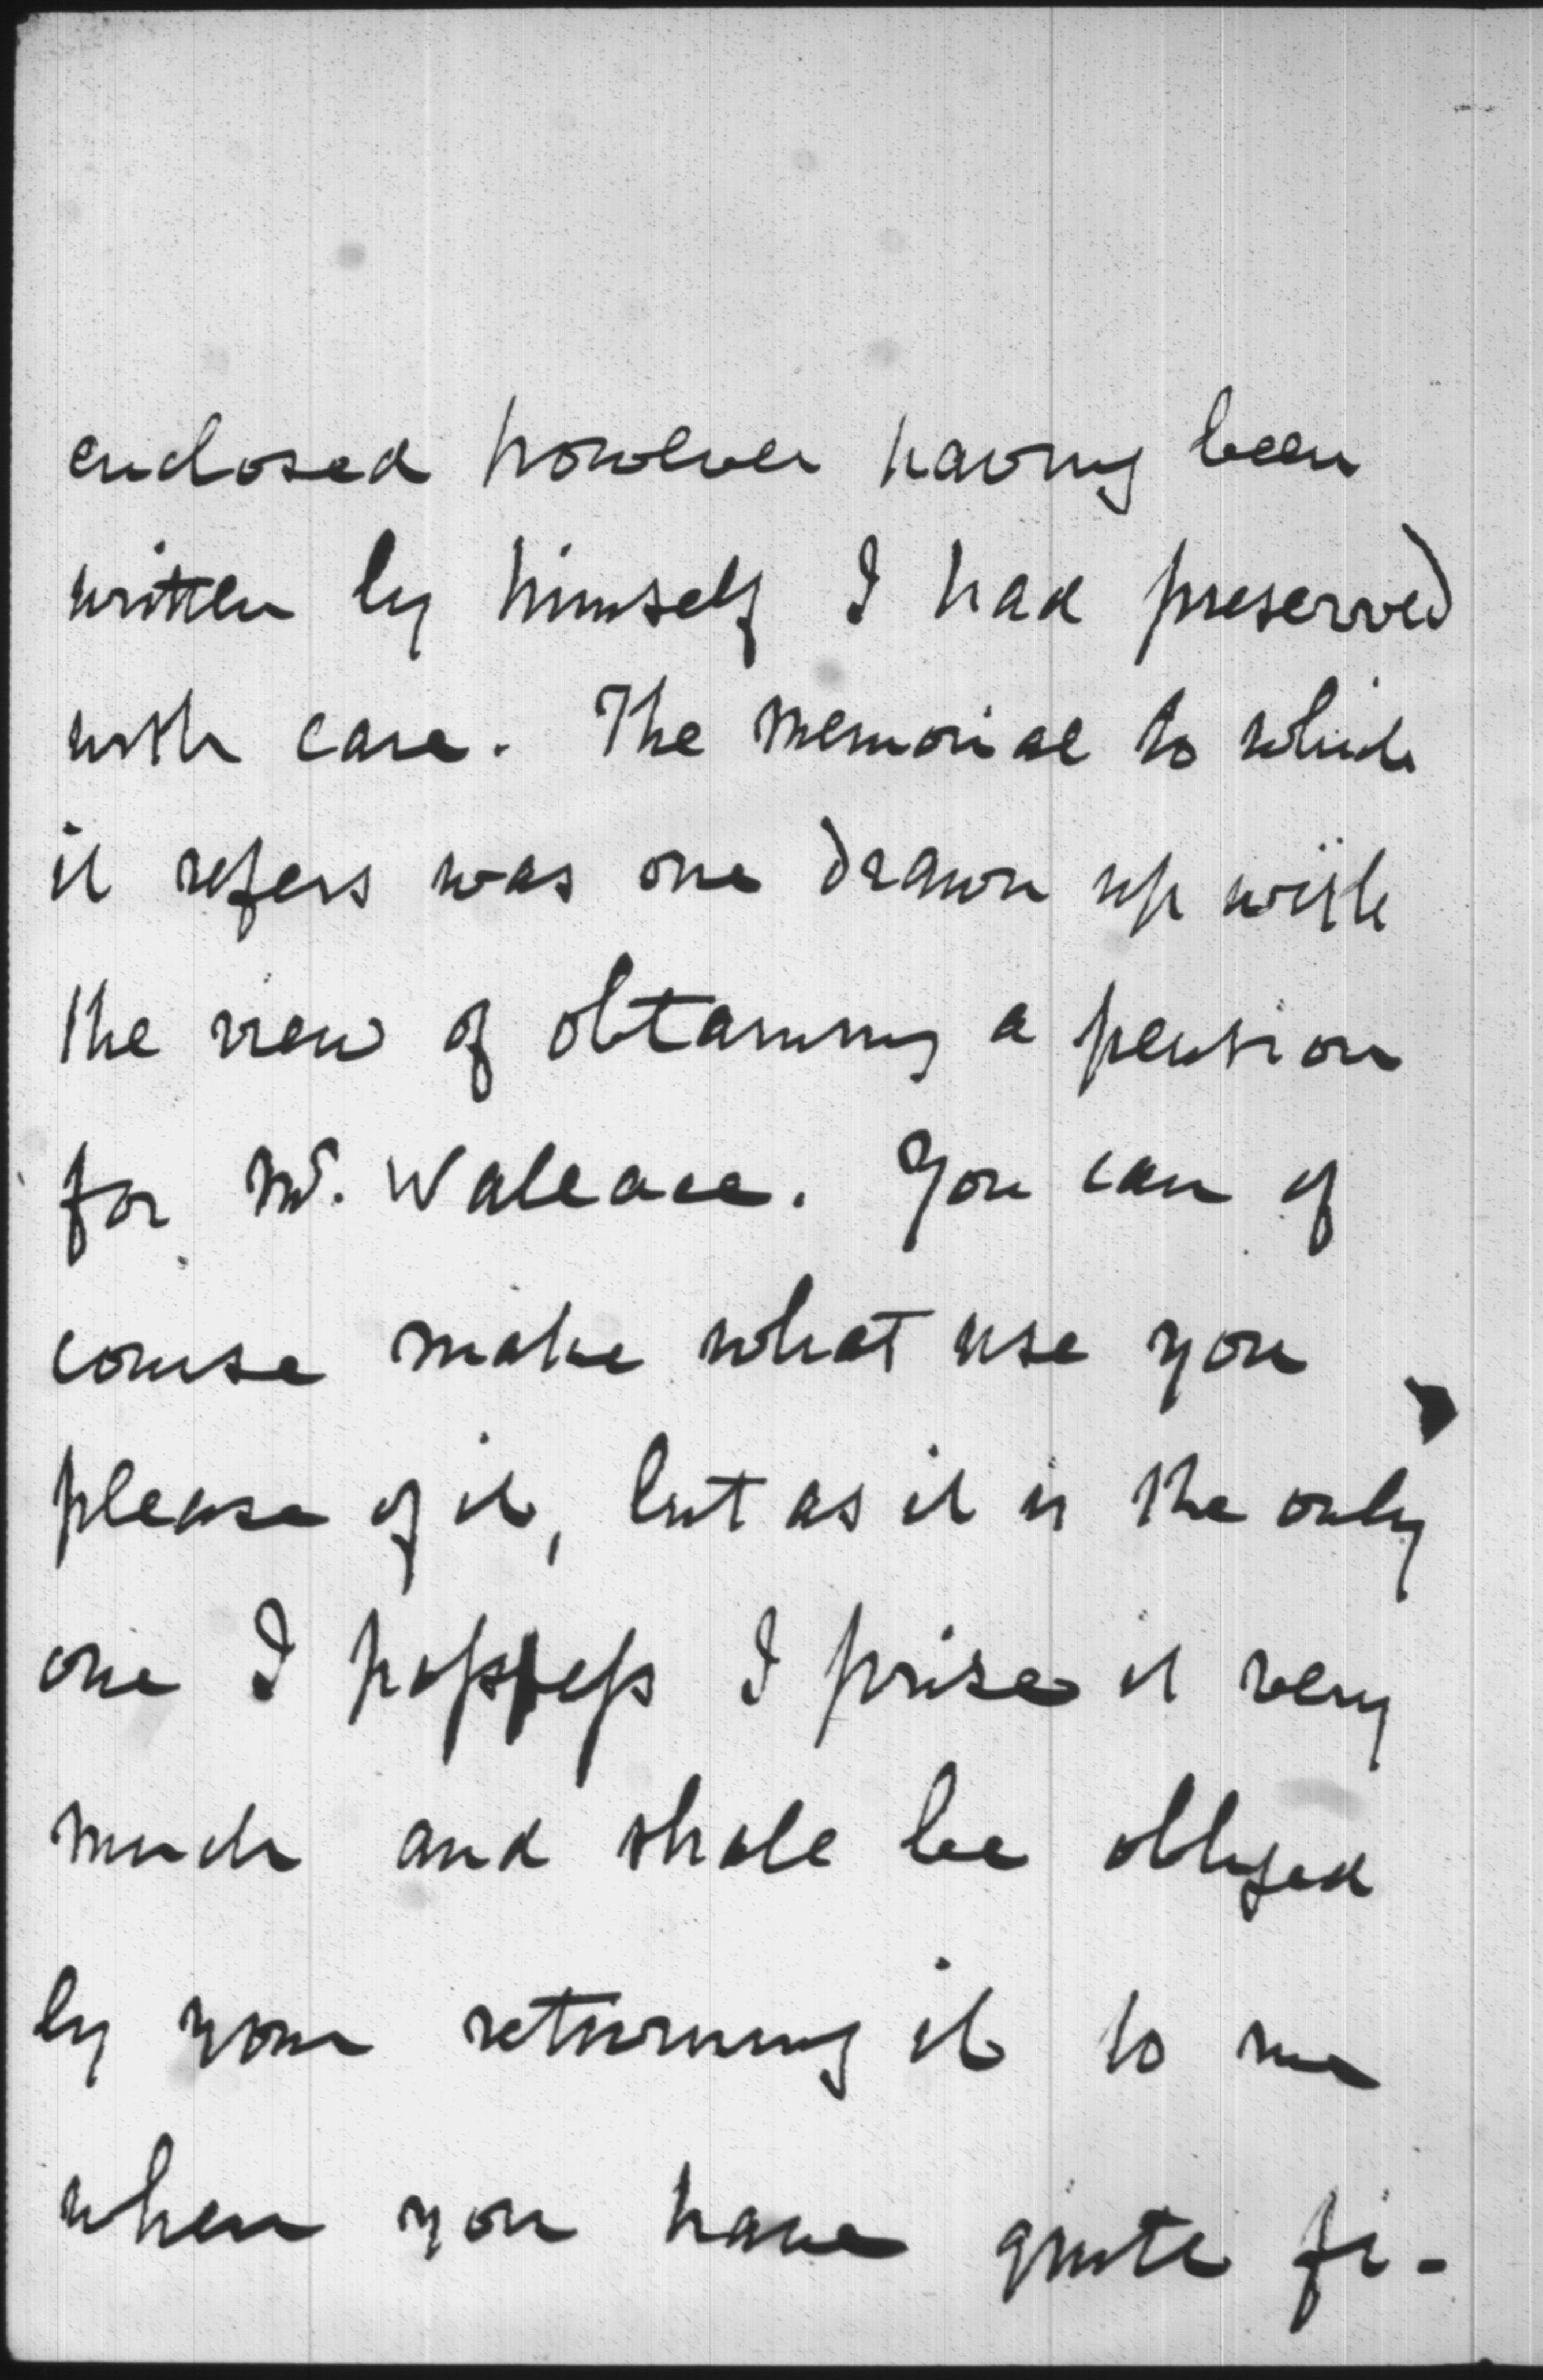 enclosed however having been
written by himself I had preserved
with care. The memorial to which
it refers was one drawn up with
the view of obtaining a pension
for Mr. Wallace. You can of
course make what use you
please of it, but as it is the only
one I possess I prise it very
much and shall be obliged
by your returning it to me
when you have quite fi-